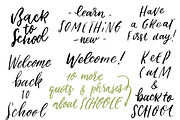 Back
to
School
learn
SOMETHING
- new -
Have
a Great
First day!
Welcome
back
to
School
Welcome!
10 more
quots & phrases
about SCHOOLE
KEEP
CALM
&
back to
SCHOOL